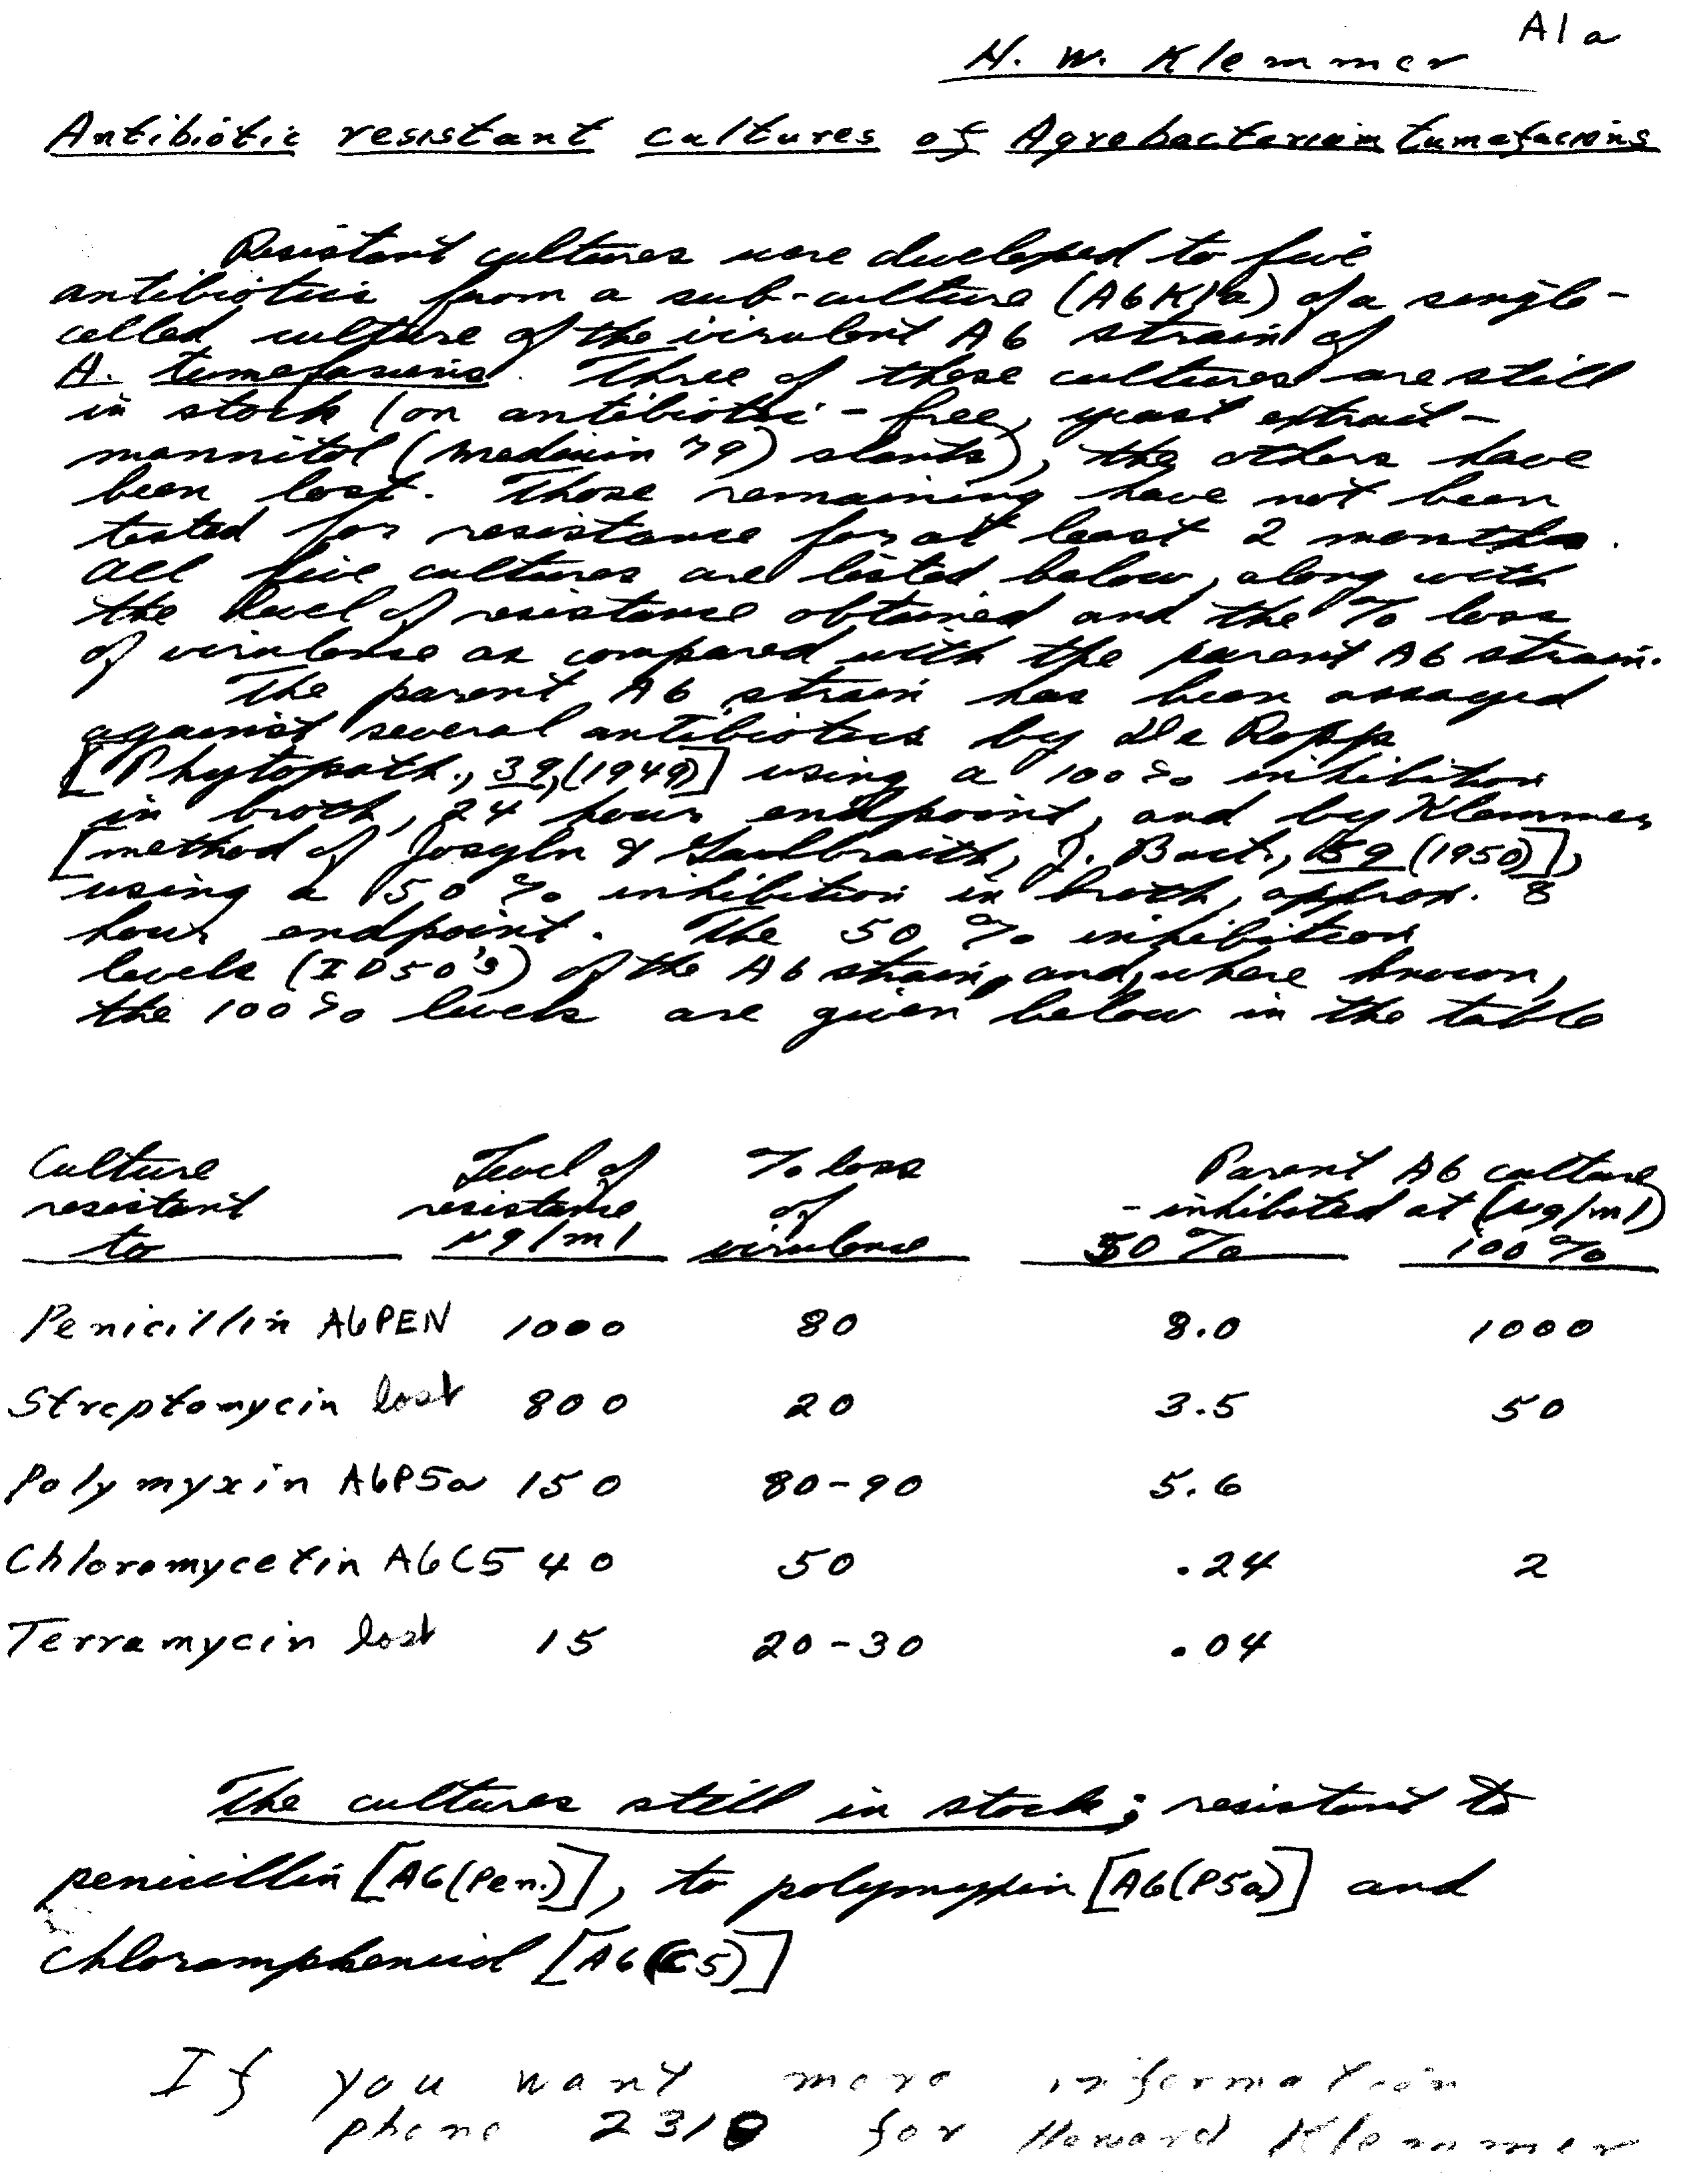 A1a
H. W. Klemmer
Antibiotic resistant cultures of Agrobacterium tumefaciens
Resistant cultures were developed to five
antibiotics from a sub-culture (A6K1a) of a single-
celled culture of the virulent A6 strain of
A. tumefaciens. Three of these cultures are still
in stock (on antibiotic-free, yeast extract-
mannitol (medium 79) slants), the others have
been lost. Those remaining have not been
tested for resistance for at least 2 months.
All five cultures are listed below, along with
the level of resistance obtained and the % loss
of virulence as compared with the parent A6 strain.
The parent A6 strain has been assayed
against several antibiotics by De Ropp
[Phytopath., 39, (1949)] using a 100% inhibition
in broth, 24 hour endpoint, and by Klemmer
[method of Joslyn & Galbraith, J. Bact., 59 (1950)],
using a 50% inhibition in broth, approx. 8
hour endpoint. The 50% inhibition
levels (ID50's) of the A6 strain, and, where known,
the 100% levels are given below in the table
Culture Level of % loss Parent A6 culture
resistant resistance of - inhibited at (µg/ml)
to µg/ml virulence 50% 100%
Penicillin A6PEN 1000 80 8.0 1000
Streptomycin lost 800 20 3.5 50
Polymyxin A6P5a 150 80-90 5.6
Chloromycetin A6C5 40 50 .24 2
Terramycin lost 15 20-30 .04
The cultures still in stock; resistant to
penicillin [A6(Pen.)], to polymyxin [A6(P5a)] and
chloramphenicol [A6(C5)]
If you want more information
phone 2318 for Howard Klemmer